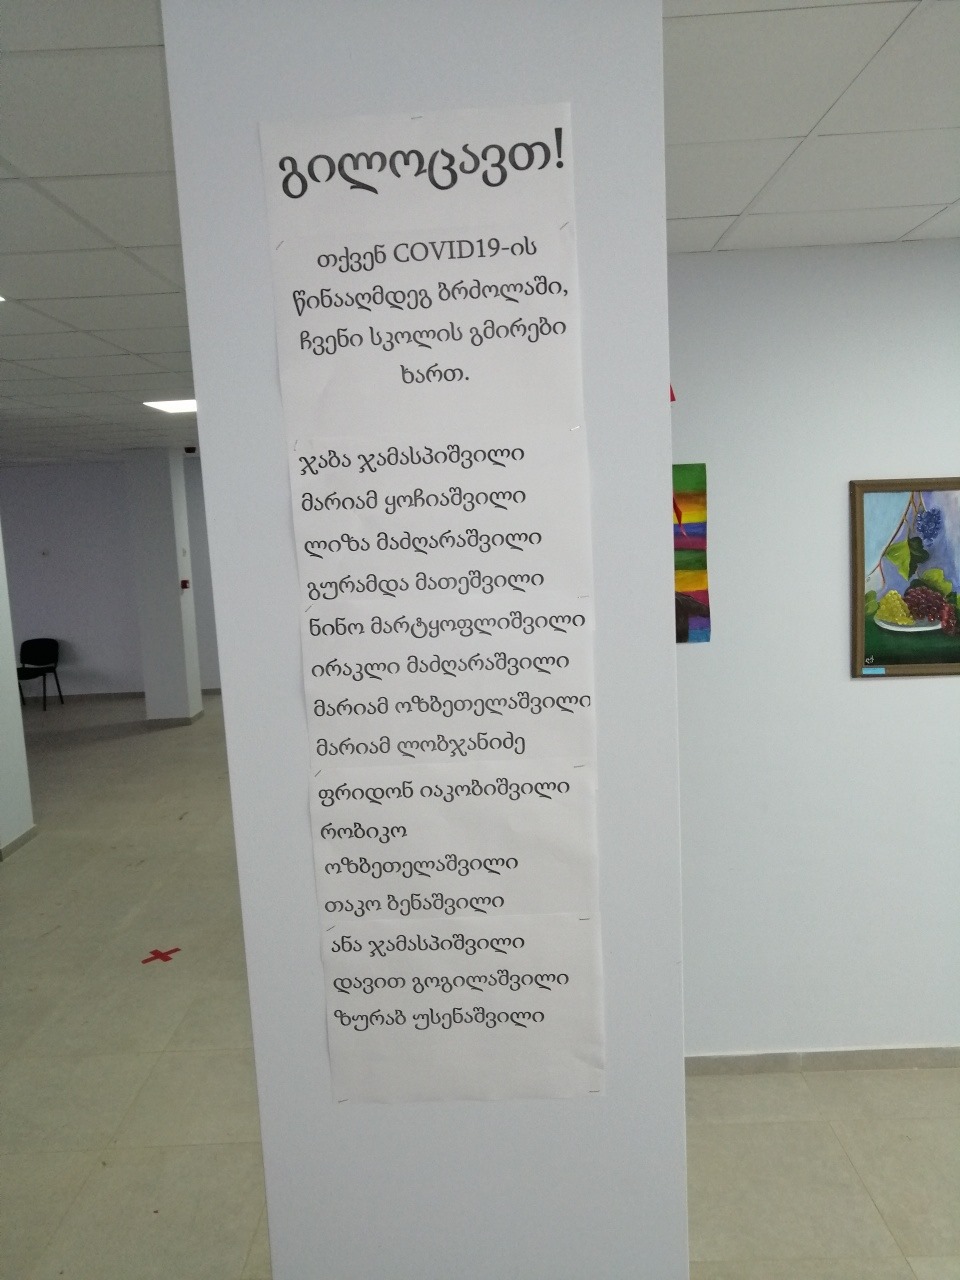 გილოცავთ!
თქვენ COVID19-ის
წინააღმდეგ ბრძოლაში,
ჩვენი სკოლის გმირები
ხართ.
ჯაბა ჯამასპიშვილი
მარიამ ყოჩიაშვილი
ლიზა მაძღარაშვილი
გურამდა მათეშვილი
ნინო მარტყოფლიშვილი
ირაკლი მაძღარაშვილი
მარიამ ოზბეთელაშვილი
მარიამ ლობჯანიძე
ფრიდონ იაკობიშვილი
რობიკო
ოზბეთელაშვილი
თაკო ბენაშვილი
ანა ჯამასპიშვილი
დავით გოგილაშვილი
ზურაბ უსენაშვილი